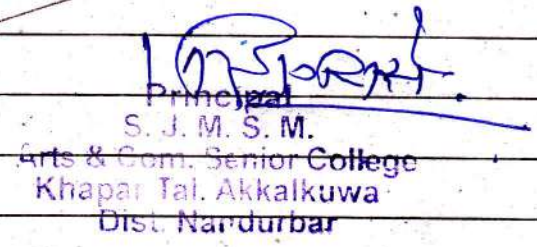 Principal
S. J. M. S. M.
Arts & Com. Senior College
Khapar Tal. Akkalkuwa
Dist. Nandurbar